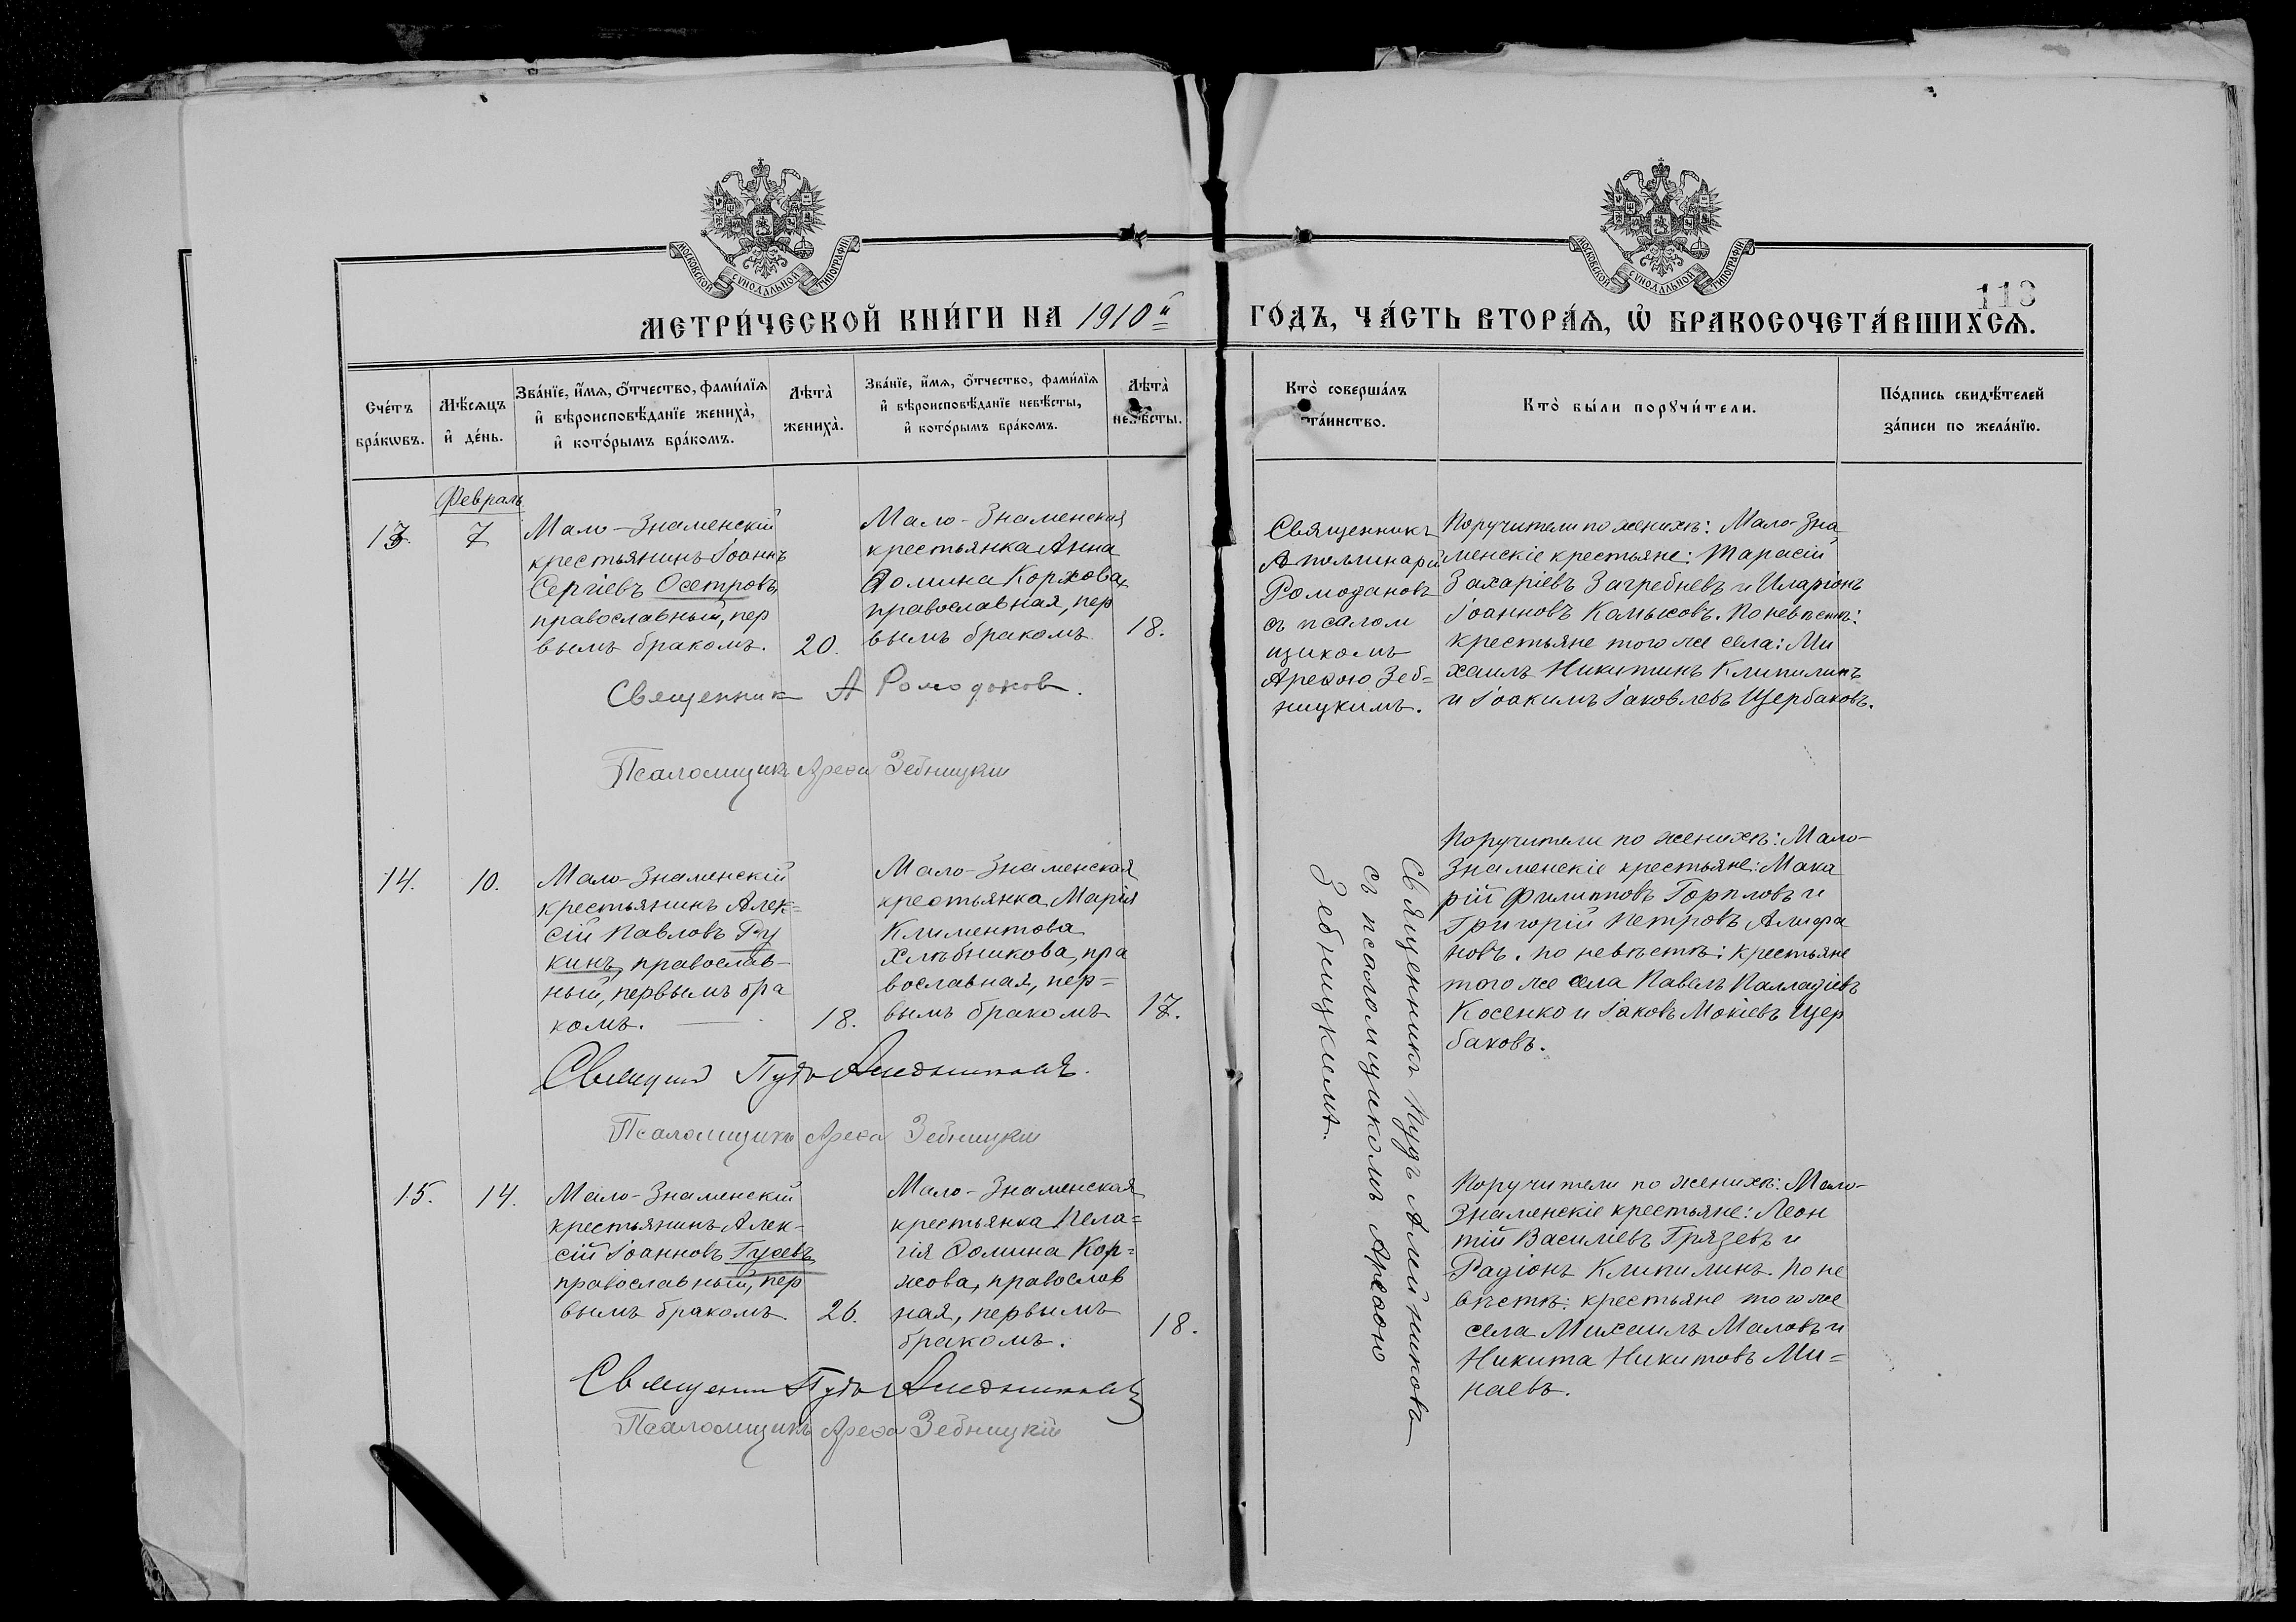 МОСКОВСКОЙ СѴНОДАЛЬНОЙ ТИПОГРАФІИ
МОСКОВСКОЙ СѴНОДАЛЬНОЙ ТИПОГРАФІИ
118
МЕТРИ́ЧЕСКОЙ КНИ́ГИ НА 1910й ГО́ДЪ, ЧА́СТЬ ВТОРА́Ѧ, Ѽ БРАКОСОЧЕТА́ВШИХСѦ.
Сче́тъ
бра́кѡвъ.
Мѣ́сяцъ
и҆ де́нь.
Зва́нїе, и҆́мѧ, ѻ҆́тчество, фами́лїѧ
и҆ вѣроисповѣ́данїе жениха̀,
и҆ кото́рымъ бра́комъ.
Лѣта̀
жениха̀.
Зва́нїе, и҆́мѧ, ѻ҆́тчество, фами́лїѧ
и҆ вѣроисповѣ́данїе невѣ́сты,
и҆ кото́рымъ бра́комъ.
Лѣта̀
невѣ́сты.
Кто̀ соверша́лъ
та́инство.
Кто̀ бы́ли порꙋчи́тели.
По́дпись свидѣ́телей
за́писи по жела́нїю.
Февраль
13.
7
Мало-Знаменскій
крестьянинъ Іоаннъ
Сергіевъ Осетровъ,
православный, пер
вымъ бракомъ.
20.
Мало-Знаменская
крестьянка Анна
Ѳомина Коржова,
православная, пер
вымъ бракомъ.
18.
Священникъ
Аполлинарій
Ромодановъ
съ псалом
щикомъ
Ареѳою Зеб=
ницкимъ.
Поручители по женихѣ: Мало-Зна
менскіе крестьяне: Тарасій
Захаріевъ Загребневъ и Иларіонъ
Іоанновъ Камысовъ. По невѣстѣ:
крестьяне того же села: Ми
хаилъ Никитинъ Клипилинъ
и Іоакимъ Іаковлевъ Щербаковъ.
Священник А Ромоданов.
Псаломщикъ Ареѳа Зебницкій
14.
10.
Мало-Знаменскій
крестьянинъ Алек=
сій Павловъ Гу
кинъ, православ-
ный, первымъ бра
комъ.
18.
Мало-Знаменская
крестьянка Марія
Климентова
Хлѣбникова, пра
вославная, пер=
вымъ бракомъ
17.
Священникъ Пудъ Алейниковъ
съ псаломщикомъ Ареѳою
Зебницкимъ.
Поручители по женихѣ: Мало-
Знаменскіе крестьяне: Мака
рій Филипповъ Горпловъ и
Григорій Петровъ Алифа
новъ. По невѣстѣ: крестьяне
того же села Павелъ Палладіевъ
Косенко и Іаковъ Мокіевъ Щер
баковъ.
Священник Пудъ Алейниковъ.
Псаломщикъ Ареѳа Зебницкій
15.
14.
Мало-Знаменскій
крестьянинъ Алек-
сій Іоанновъ Гусевъ,
православный, пер
вымъ бракомъ
26.
Мало-Знаменская
крестьянка Пела=
гія Ѳомина Кор=
жова, православ
ная, первымъ
бракомъ.
18.
Поручители по женихѣ: Мало-
Знаменскіе крестьяне: Леон
тій Василіевъ Грязевъ и
Радіонъ Клипилинъ. По не
вѣстѣ: крестьяне того же
села Михаилъ Маловъ и
Никита Никитовъ Ми=
наевъ.
Священник Пудъ Алейниковъ
Псаломщикъ Ареѳа Зебницкій